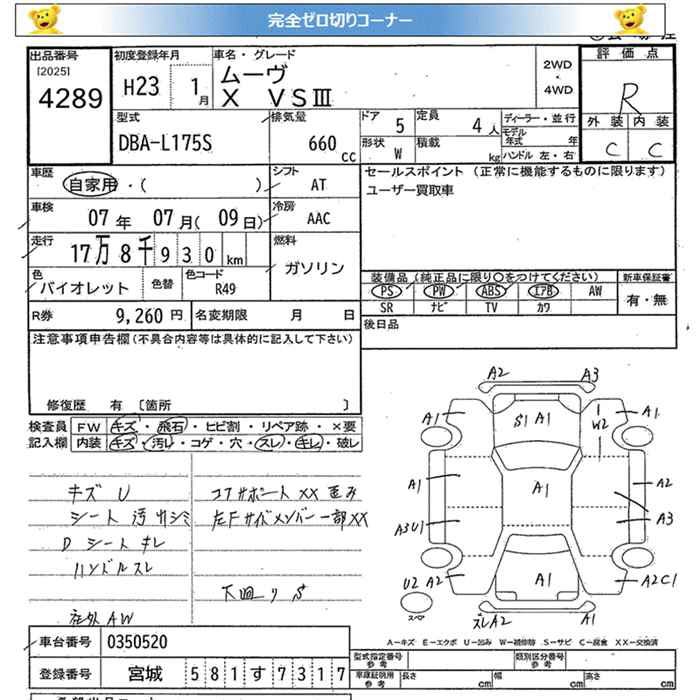 完全ゼロ切りコーナー
出品番号
[2025]
4289
初度登録年月
H23 1月
車名・グレード
ムーヴ
X VSⅢ
2WD
4WD
評価点
R
外装 内装
C C
型式
DBA-L175S
排気量
660 cc
ドア 5
定員 4人
形状 W
積載 kg
ディーラー・並行
モデル年式 年
ハンドル 左・右
車歴
自家用・( )
シフト
AT
セールスポイント (正常に機能するものに限ります)
ユーザー買取車
車検
07年 07月(09日)
冷房
AAC
走行
17万8千930km
燃料
ガソリン
色
バイオレット
色替
色コード
R49
装備品 (純正品に限り○をつけてください)
PS PW ABS エアB AW
SR ナビ TV カワ
新車保証書
有・無
R券 9,260円
名変期限 月 日
後日品
注意事項申告欄(不具合内容等は具体的に記入して下さい)
修復歴 有 〔箇所 〕
検査員 FW キズ・飛石・ヒビ割・リペア跡・×要
記入欄 内装 キズ・汚レ・コゲ・穴・スレ・キレ・破レ
キズ U
シート 汚レ シミ
D シート キレ
ハンドルスレ
社外AW
コアサポート XX 歪み
左F サイドメンバー 一部XX
下廻り S
A2 A3
A1 S1 A1 W2 A1
A1 A1 A2
A3U1 A3
U2 A2 A1 A2C1
スペア
スレA2 A1
A−キズ E−エクボ U−凹み W−補修跡 S−サビ C−腐食 XX−交換済
車台番号 0350520
型式指定番号 参考
類別区分番号 参考
登録番号 宮城 581す7317
車庫証明用 参考 長さ cm 幅 cm 高さ cm